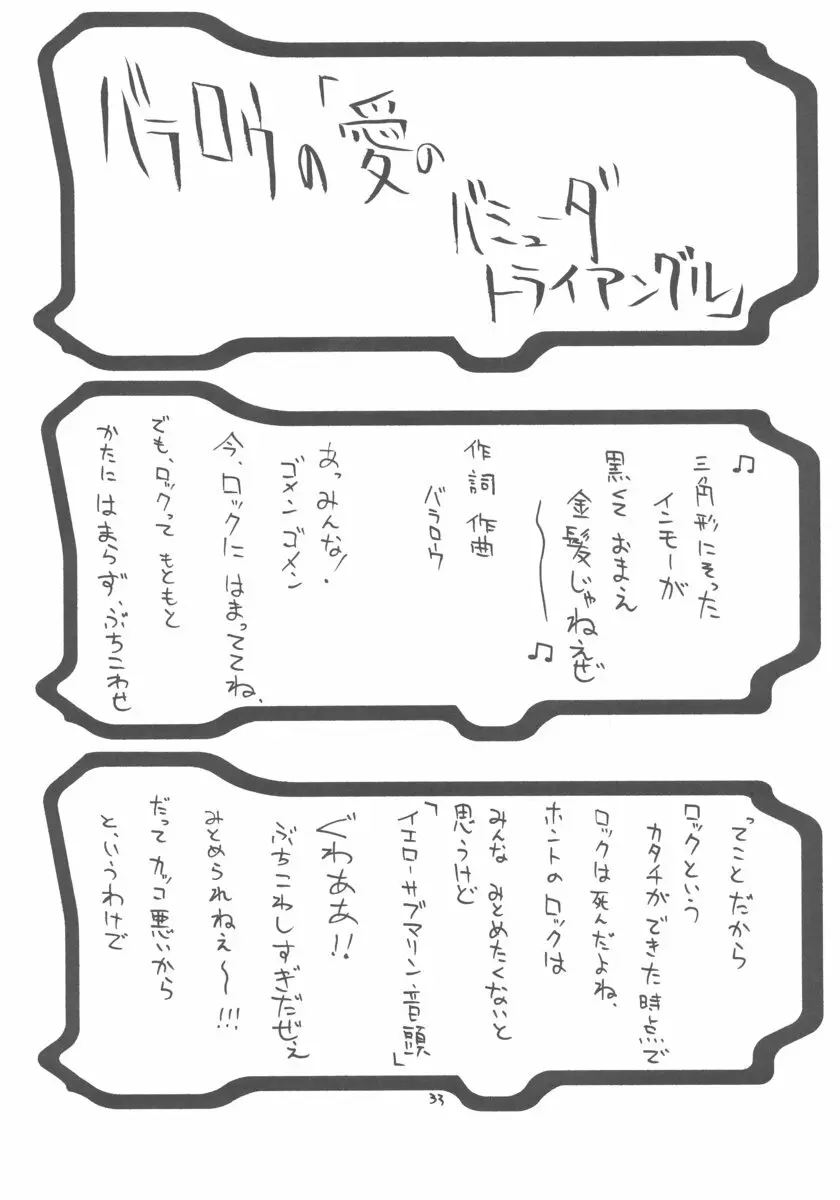 バラロウの「愛の
バミューダ
トライアングル」
♫三角形にそった
インモーが
黒くて おまえ
金髪じゃねえぜ〜♫
作詞 作曲
バラロウ
あっ みんな!
ゴメン ゴメン
今、ロックに はまっててね、
でも、ロックって もともと
かたに はまらず、ぶちこわせ
ってことだから
ロックという
カタチが できた時点で
ロックは死んだよね、
ホントのロックは
みんな みとめたくないと
思うけど
「イエローサブマリン音頭」
ぐわああ!!
ぶちこわしすぎだぜぇ
みとめられねぇ〜!!!
だって カッコ悪いから
と、いうわけで
33